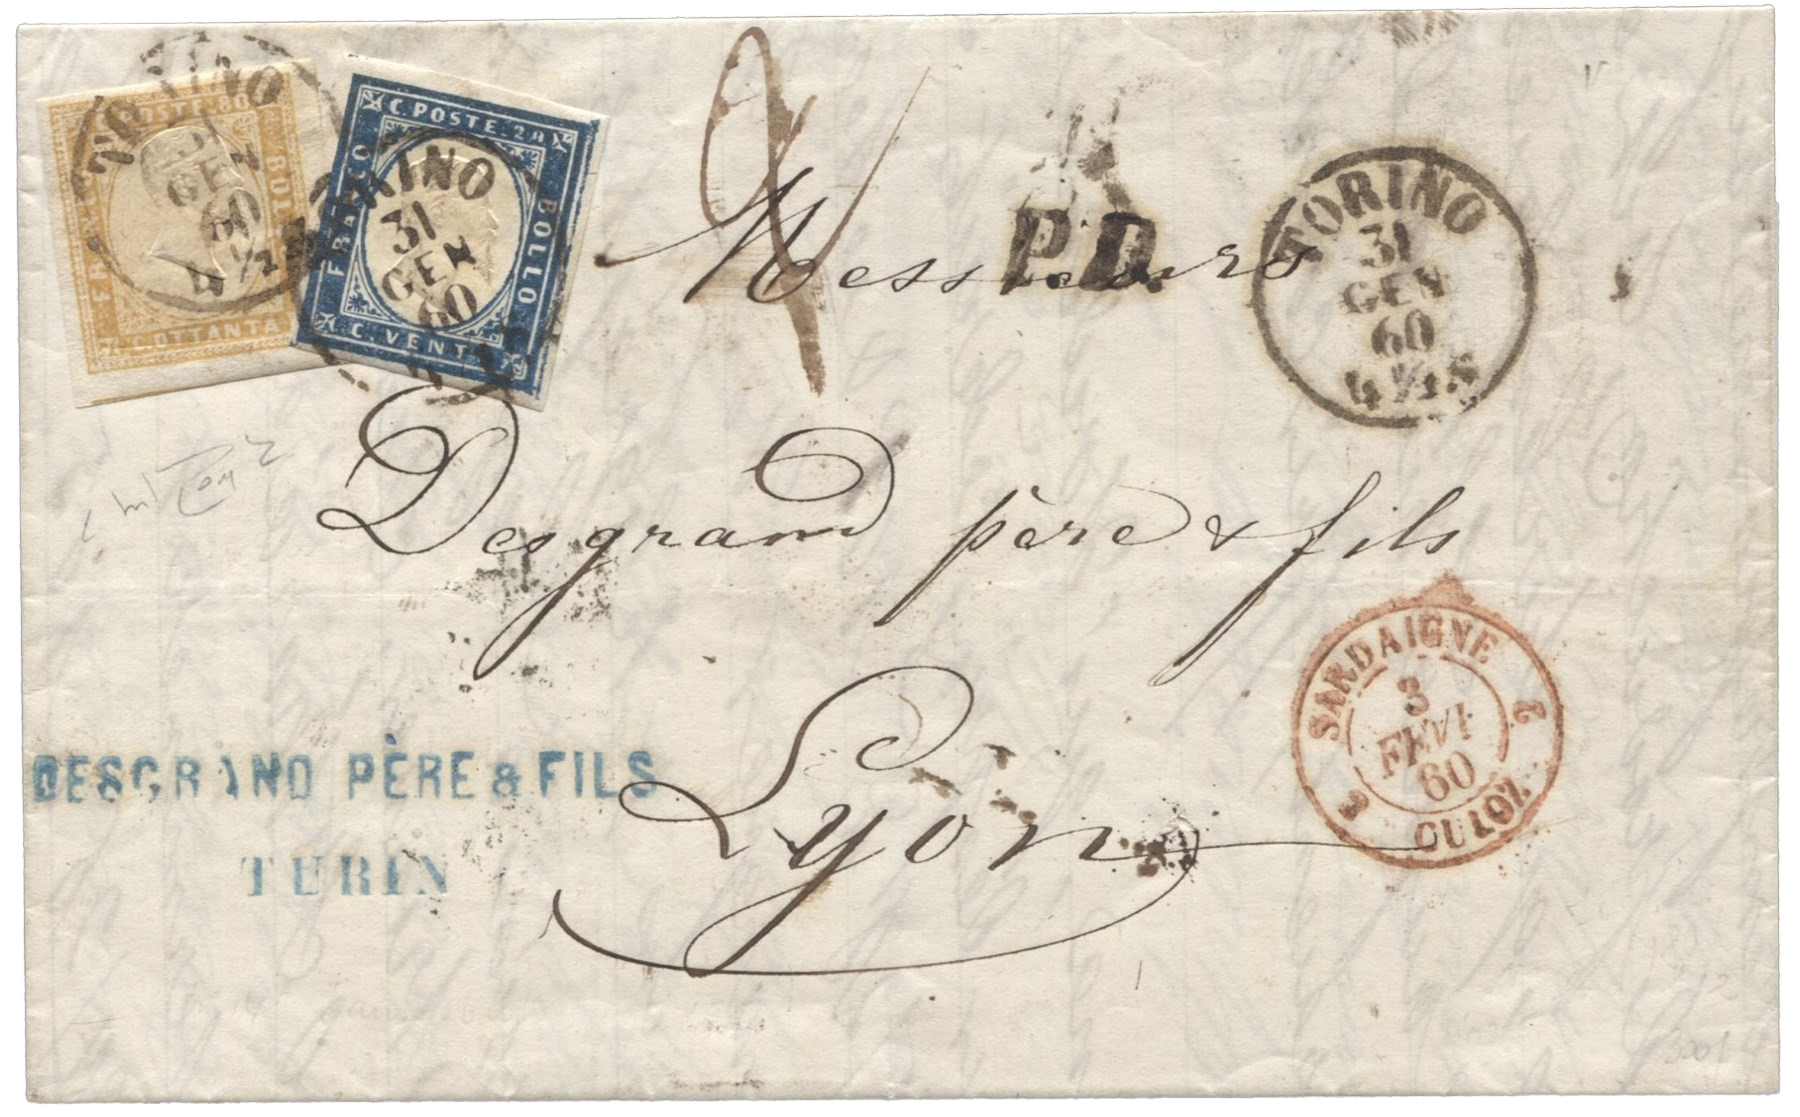 C. POSTE. 80
FRANCO
BOLLO
C. OTTANTA
TORINO
31
GEN
60
4 ½ S
C. POSTE. 20
FRANCO
BOLLO
C. VENTI
TORINO
31
GEN
60
2
P.D.
TORINO
31
GEN
60
4 ½ S
Messieurs
Desgrand père & fils
Lyon
SARDAIGNE
3
FEVR
60
2 CULOZ 2
DESGRAND PÈRE & FILS
TURIN